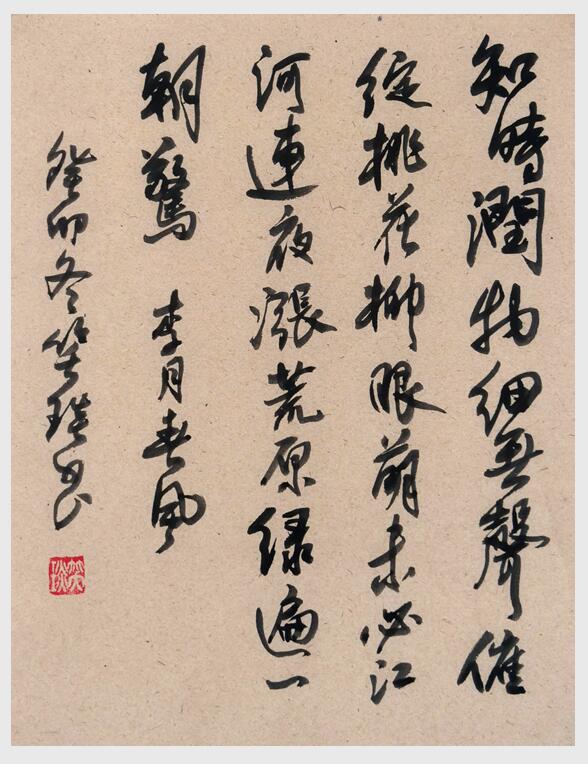 知時潤物細無聲催
綻桃花柳眼萌未必江
河連夜漲荒原緑遍一
朝驚 李月春風
癸卯冬 书